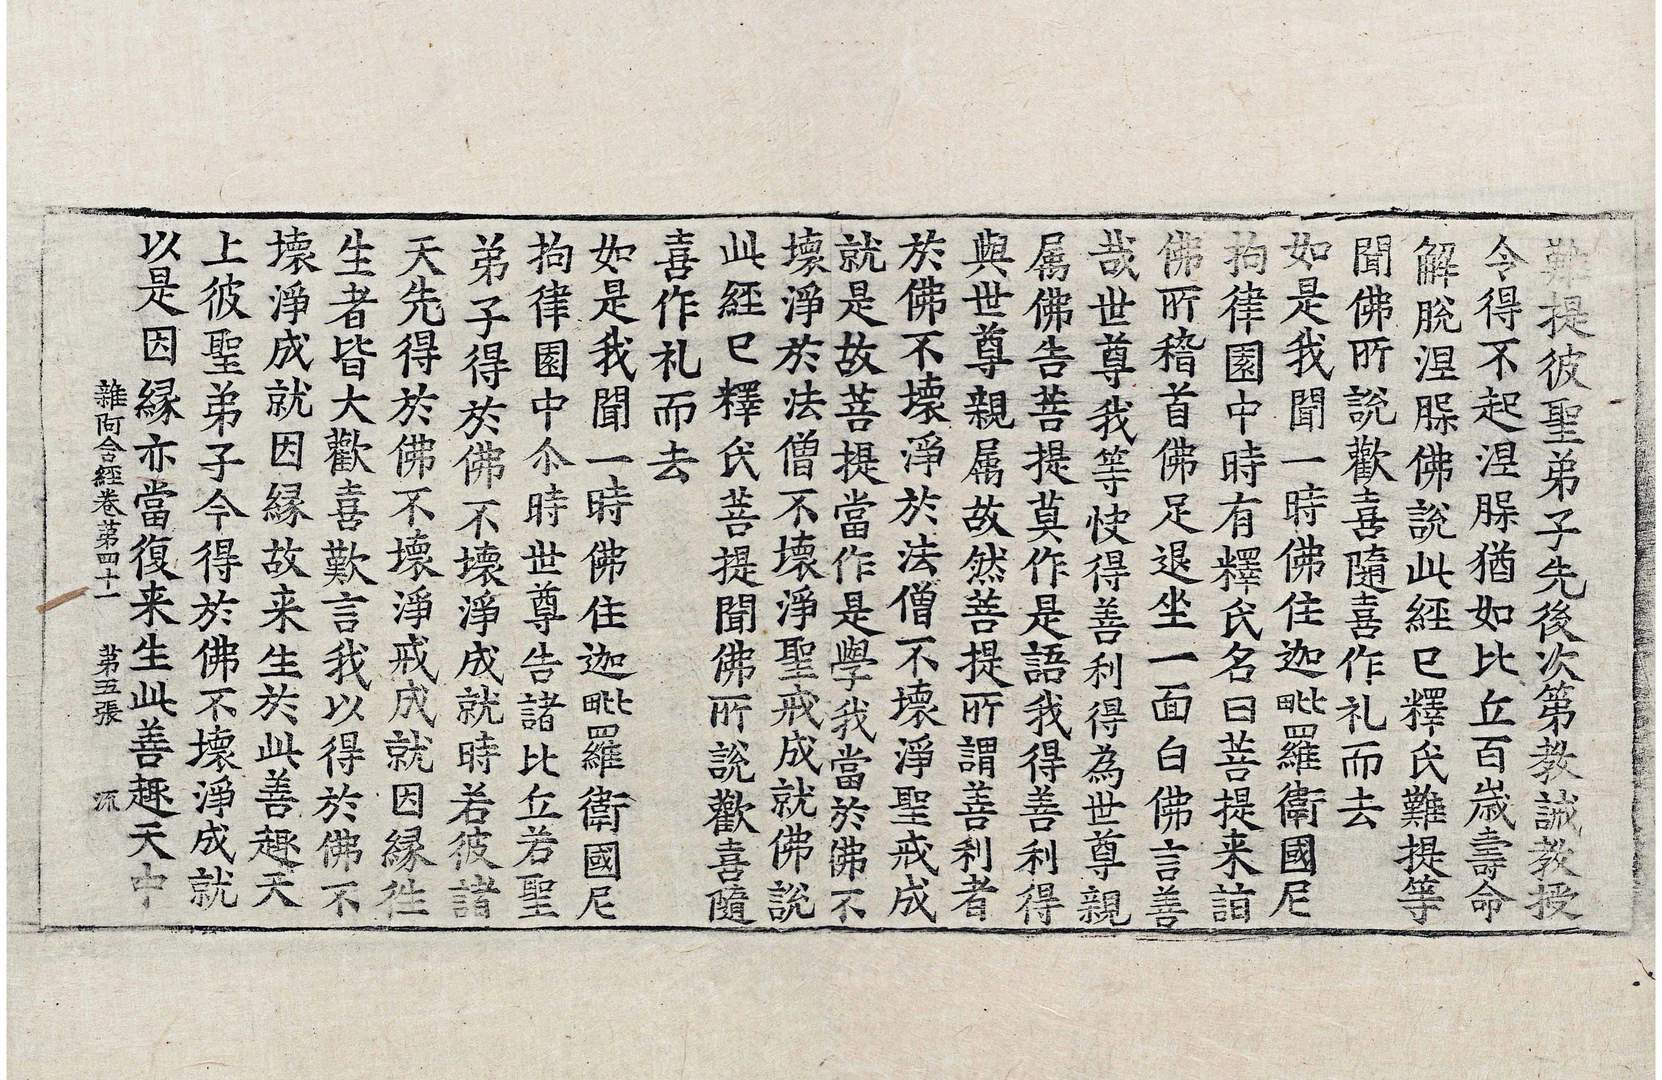 難提彼聖弟子先後次第教誡教授
令得不起涅槃猶如比丘百歲壽命
解脫涅槃佛說此經已釋氏難提等
聞佛所說歡喜隨喜作礼而去
如是我聞一時佛住迦毗羅衛國尼
拘律園中時有釋氏名曰菩提来詣
佛所稽首佛足退坐一面白佛言善
哉世尊我等快得善利得為世尊親
属佛告菩提莫作是語我得善利得
與世尊親属故然菩提所謂善利者
於佛不壞淨於法僧不壞淨聖戒成
就是故菩提當作是學我當於佛不
壞淨於法僧不壞淨聖戒成就佛說
此經已釋氏菩提聞佛所說歡喜隨
喜作礼而去
如是我聞一時佛住迦毗羅衛國尼
拘律園中尒時世尊告諸比丘若聖
弟子得於佛不壞淨成就時若彼諸
天先得於佛不壞淨戒成就因縁徃
生者皆大歡喜歎言我以得於佛不
壞淨成就因縁故来生於此善趣天
上彼聖弟子今得於佛不壞淨成就
以是因縁亦當復来生此善趣天中
雜阿含經卷第四十一 第五張 流